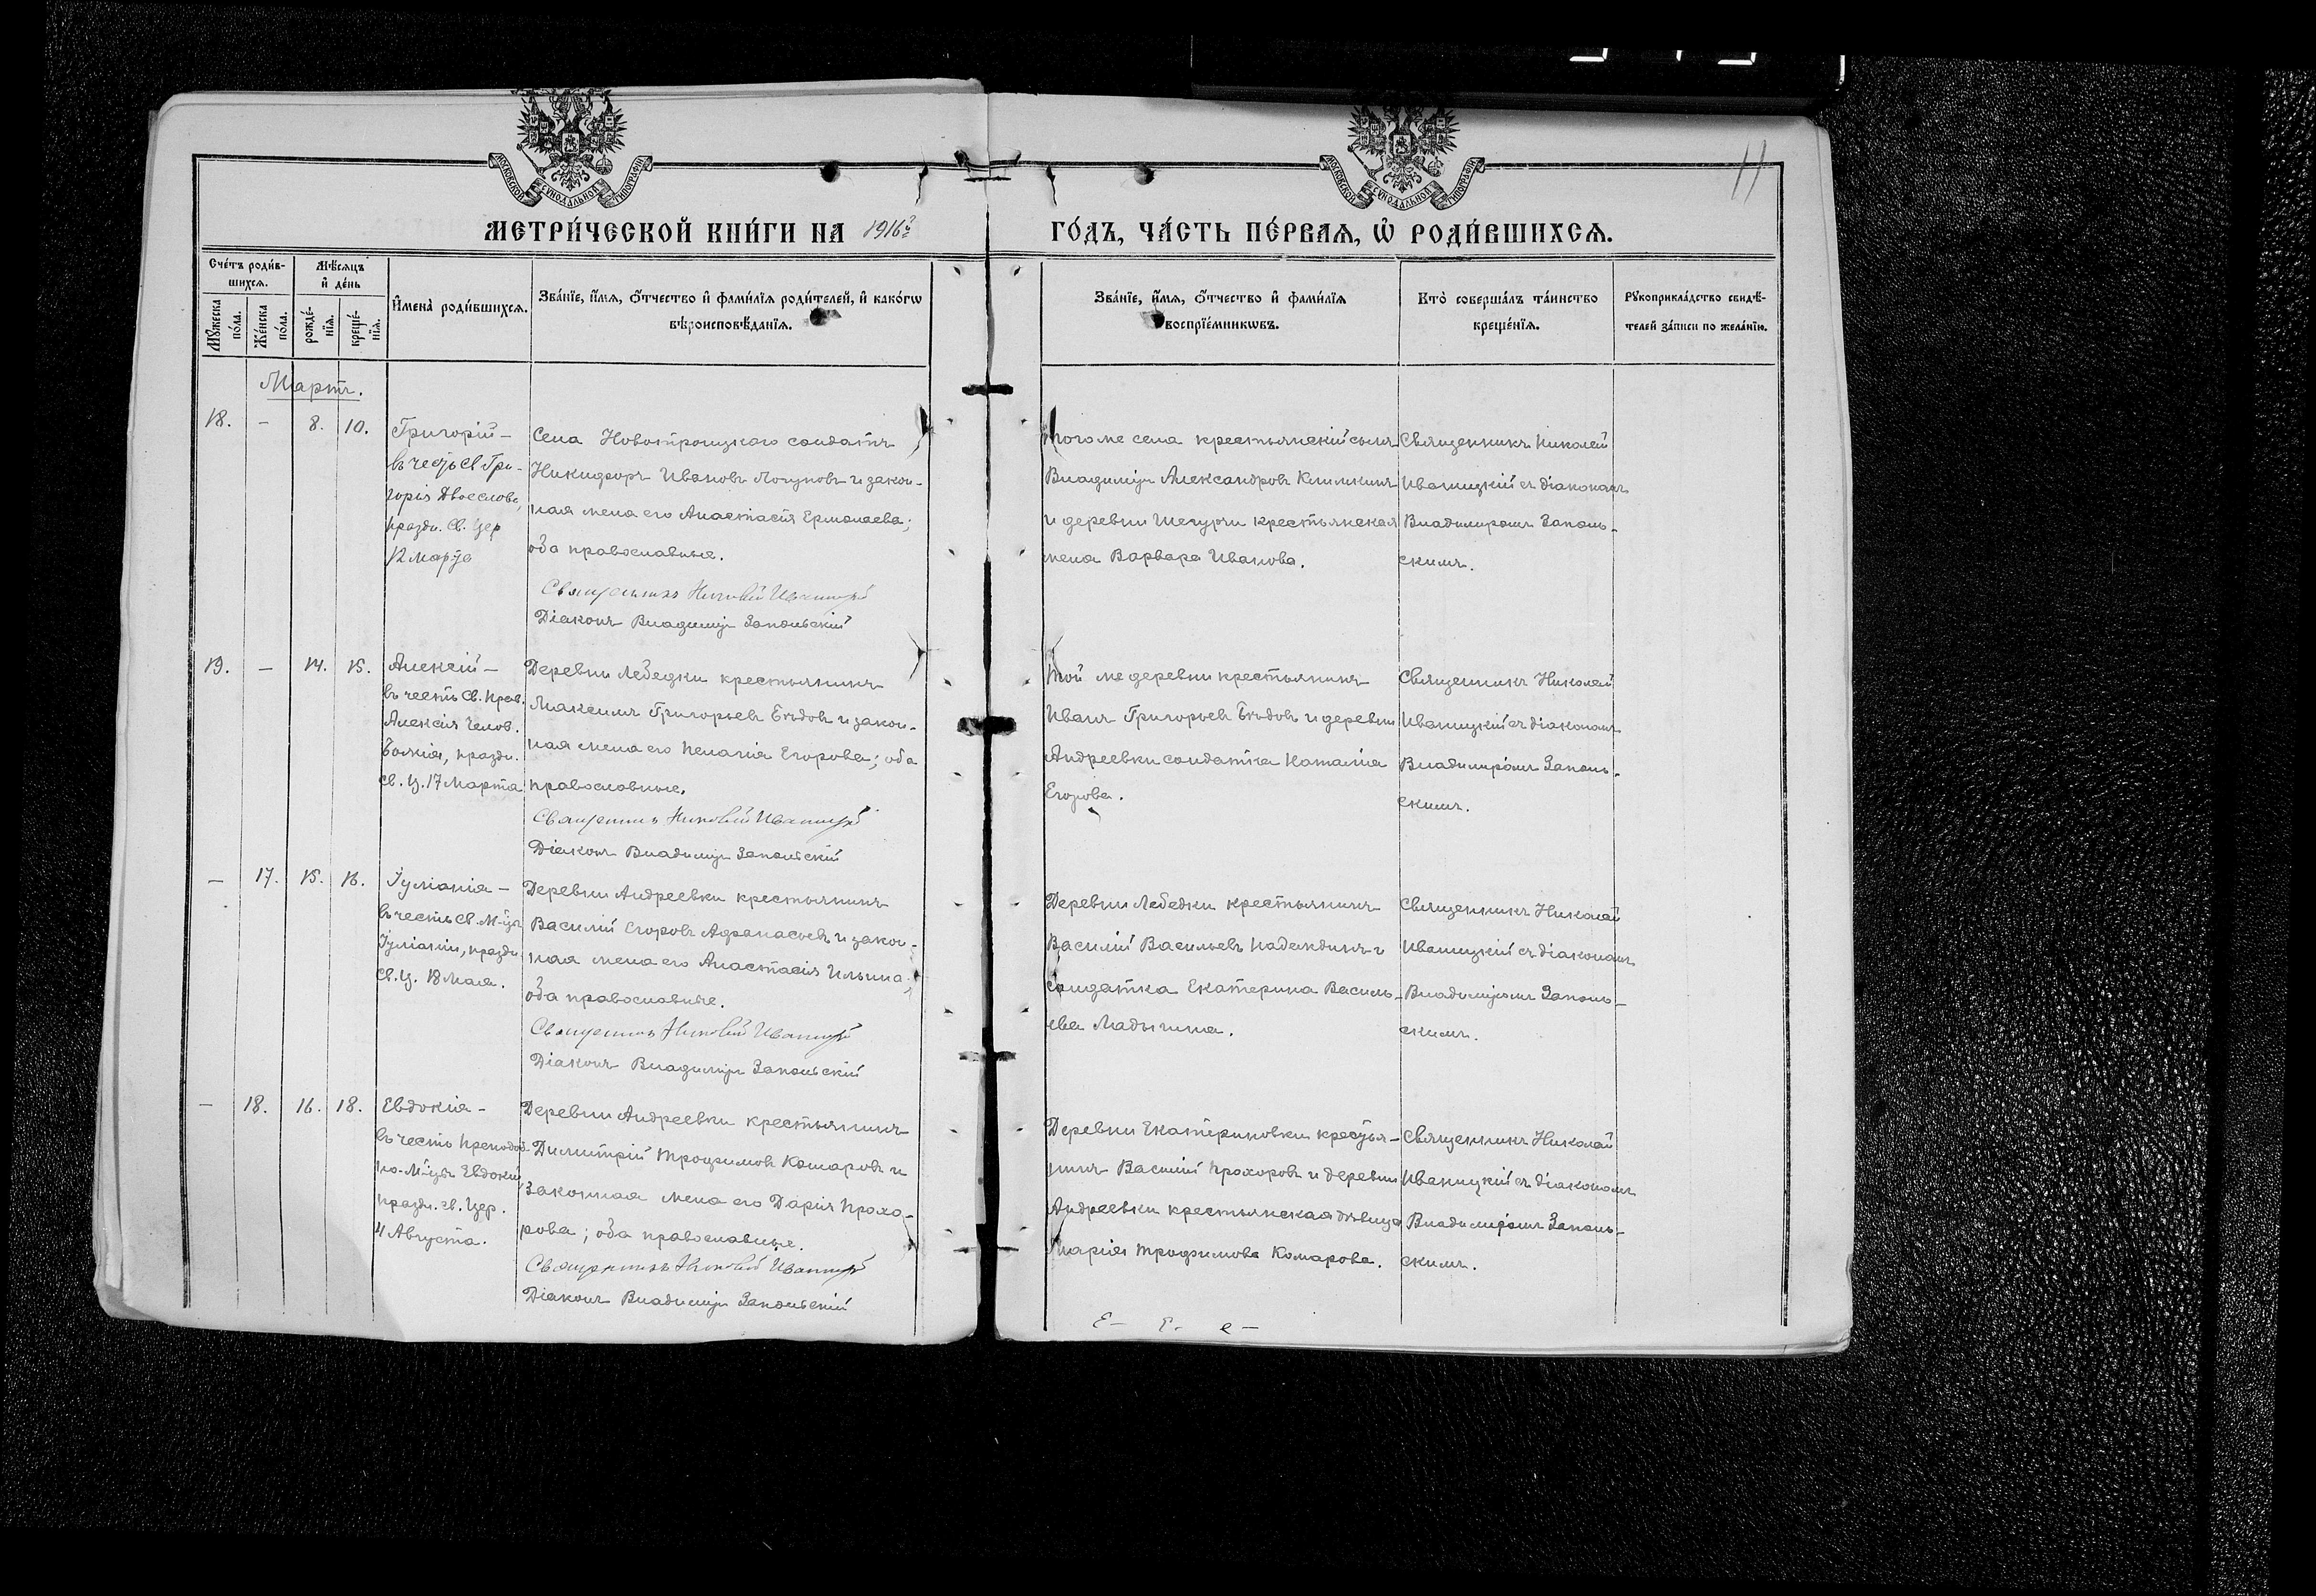 МОСКОВСКОЙ СѴНОДАЛЬНОЙ ТИПОГРАФІИ
МОСКОВСКОЙ СѴНОДАЛЬНОЙ ТИПОГРАФІИ
11
МЕТРИ́ЧЕСКОЙ КНИ́ГИ НА 1916й
ГО́ДЪ, ЧА́СТЬ ПЕ́РВАѦ, Ѡ҆ РОДИ́ВШИХСѦ.
Сче́тъ роди́в-
шихсѧ.
Мѣ́сѧцъ
и҆ де́нь
Мꙋ́жеска
по́ла.
Же́нска
по́ла.
рожде́-
нїѧ.
креще́-
нїѧ.
И҆мена̀ роди́вшихсѧ.
Зва́нїе, и҆́мѧ, ѻ҆́тчество и҆ фами́лїѧ роди́телей, и҆ како́гѡ
вѣроисповѣ́данїѧ.
Зва́нїе, и҆́мѧ, ѻ҆́тчество и҆ фами́лїѧ
воспрїе́мникѡвъ.
Кто̀ соверша́лъ та́инство
креще́нїѧ.
Рꙋкоприкла́дство свидѣ́-
телей за́писи по жела́нїю.
Мартъ.
18. — 8. 10.
Григорій —
въ честь Св. Гри-
горія Двоеслова,
праздн. Св. Цер
12 Марта
Села Новотроицкаго солдатъ
Никифоръ Ивановъ Логуновъ и закон-
ная жена его Анастасія Ермолаева;
оба православные.
Священникъ Николай Иваницкій
Діаконъ Владиміръ Запольскій
того же села крестьянскій сынъ
Владиміръ Александровъ Климкинъ
и деревни крестьянская
жена Варвара Иванова.
Священникъ Николай
Иваницкій съ діакономъ
Владиміромъ Заполь-
скимъ.
19. — 14. 15.
Алексій —
въ честь Св. Прав.
Алексія Челов.
Божія, праздн.
Св. Ц. 17 Марта
Деревни Лебедки крестьянинъ
Максимъ Григорьевъ Бѣдовъ и закон-
ная жена его Пелагія Егорова; оба
православные.
Священникъ Николай Иваницкій
Діаконъ Владиміръ Запольскій
той же деревни крестьянинъ
Иванъ Григорьевъ Бѣдовъ и деревни
Андреевки солдатка Наталія
Егорова.
Священникъ Николай
Иваницкій съ діакономъ
Владиміромъ Заполь-
скимъ.
— 17. 15. 16.
Іуліанія —
въ честь Св. М-цы
Іуліаніи, праздн.
Св. Ц. 18 Мая.
Деревни Андреевки крестьянинъ
Василій Егоровъ Афанасьевъ и закон-
ная жена его Анастасія Ильина;
оба православные.
Священникъ Николай Иваницкій
Діаконъ Владиміръ Запольскій
Деревни Лебедки крестьянинъ
Василій Васильевъ Надеждинъ и
солдатка Екатерина Василь-
ева Ладыгина.
Священникъ Николай
Иваницкій съ діакономъ
Владиміромъ Заполь-
скимъ.
— 18. 16. 18.
Евдокія —
въ честь преподоб-
но-М-цы Евдокіи,
праздн. св. Цер.
4 Августа.
Деревни Андреевки крестьянинъ
Димитрій Трофимовъ Комаровъ и
законная жена его Дарія Прохо-
рова; оба православные.
Священникъ Николай Иваницкій
Діаконъ Владиміръ Запольскій
Деревни Екатериновки крестья-
нинъ Василій Прохоровъ и деревни
Андреевки крестьянская дѣвица
Марія Трофимова Комарова.
Священникъ Николай
Иваницкій съ діакономъ
Владиміромъ Заполь-
скимъ.